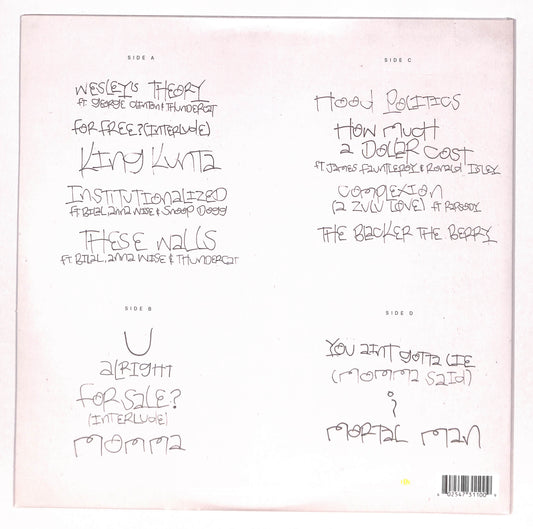 SIDE A
WESLEY'S THEORY
ft. GEORGE CLINTON & THUNDERCAT
FOR FREE? (INTERLUDE)
KING KUNTA
INSTITUTIONALIZED
ft BILAL, ANNA WISE & SNOOP DOGG
THESE WALLS
ft BILAL, ANNA WISE & THUNDERCAT
SIDE B
U
ALRIGHT
FOR SALE?
(INTERLUDE)
MOMMA
SIDE C
HOOD POLITICS
HOW MUCH
A DOLLAR COST
ft. JAMES FAUNTLEROY & RONALD ISLEY
COMPLEXION
(A ZULU LOVE) ft RAPSODY
THE BLACKER THE BERRY
SIDE D
YOU AINT GOTTA LIE
(MOMMA SAID)
i
MORTAL MAN
6 02547 31100 9